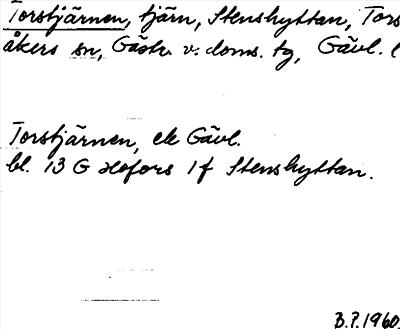 Torstjärnen, tjärn, Stenshyttan, Tors
åkers sn, Gästr. v. doms. tg, Gävl. l
Torstjärnen, ek Gävl.
bl. 13 G Hofors 1f Stenshyttan.
B.P. 1960.